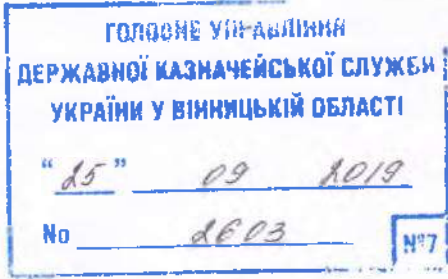 ГОЛОВНЕ УПРАВЛІННЯ
ДЕРЖАВНОЇ КАЗНАЧЕЙСЬКОЇ СЛУЖБИ
УКРАЇНИ У ВІННИЦЬКІЙ ОБЛАСТІ
"25" 09 2019
No 2603
№7